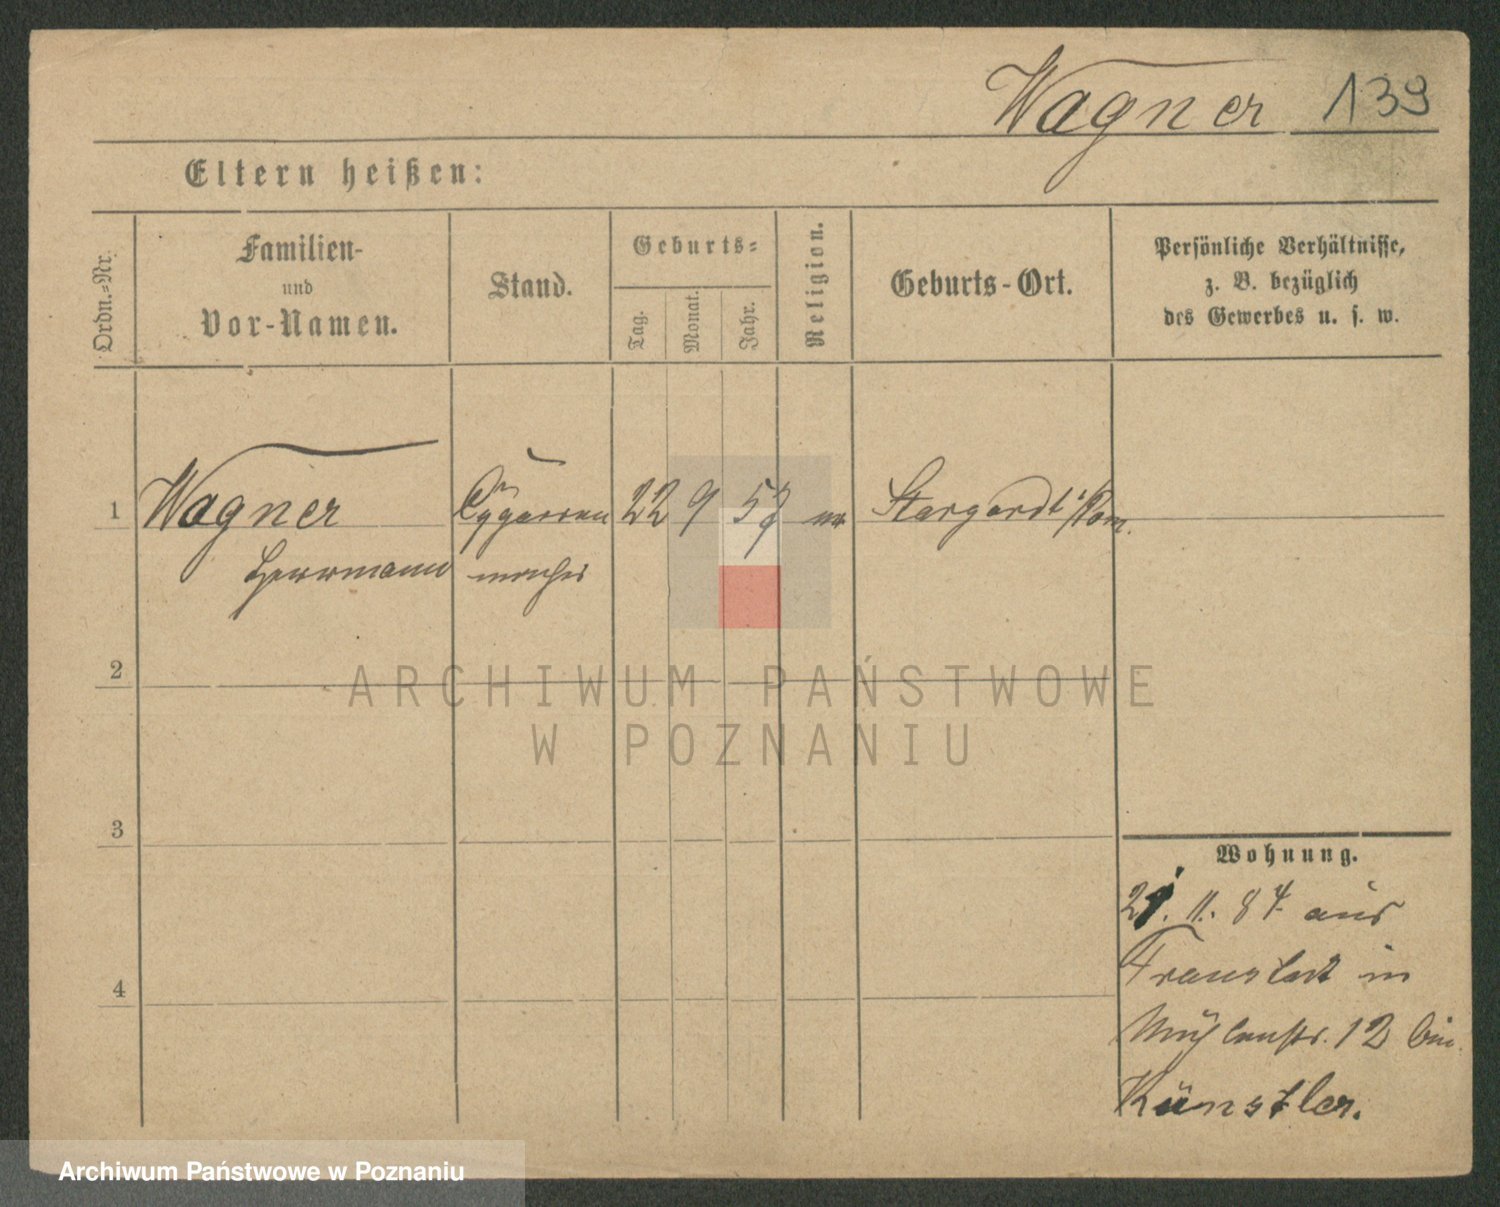 Wagner 139
Eltern heißen:
Ordn.-Nr.
Familien-
und
Vor-Namen.
Stand.
Geburts-
Tag.
Monat.
Jahr.
Religion.
Geburts-Ort.
Persönliche Verhältnisse,
z. B. bezüglich
des Gewerbes u. s. w.
1 Wagner Cygarren 22 9 57 Stargardt i/Pom.
Herrmann macher
2
ARCHIWUM PAŃSTWOWE
W POZNANIU
3
Wohnung.
21. 11. 84 aus
Fraustadt in
Mühlenstr. 12 bei
Künstler.
4
Archiwum Państwowe w Poznaniu